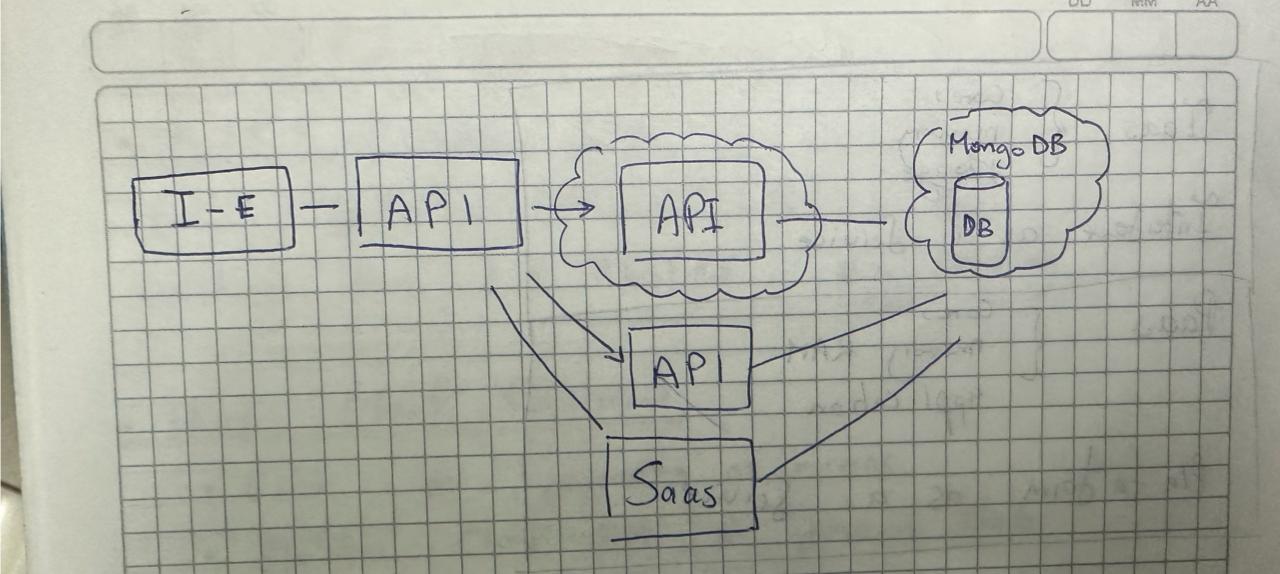 DD MM AA
I-E
API
API
MongoDB
DB
API
Saas